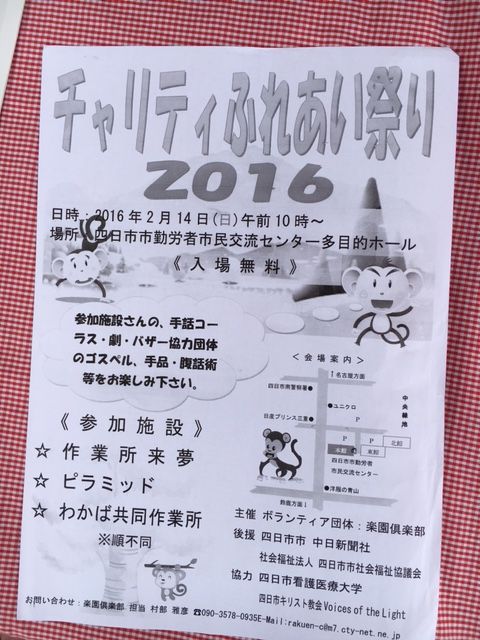 チャリティふれあい祭り
2016
日時：2016年2月14日(日)午前10時～
場所：四日市市勤労者市民交流センター多目的ホール
《入場無料》
参加施設さんの、手話コー
ラス・劇・バザー協力団体
のゴスペル、手品・腹話術
等をお楽しみ下さい。
＜会場案内＞
↑名古屋方面
四日市南警察署●
●ユニクロ
中央緑地
日産プリンス三重●
P
P
P
北館
本館
東館
四日市市勤労者
市民交流センター
●洋服の青山
鈴鹿方面↓
《参加施設》
☆ 作業所来夢
☆ ピラミッド
☆ わかば共同作業所
※順不同
主催 ボランティア団体：楽園倶楽部
後援 四日市市 中日新聞社
社会福祉法人 四日市市社会福祉協議会
協力 四日市看護医療大学
四日市キリスト教会Voices of the Light
お問い合わせ：楽園倶楽部 担当 村部 雅彦 ☎090-3578-0935E-Mail:rakuen-c@m7.cty-net.ne.jp